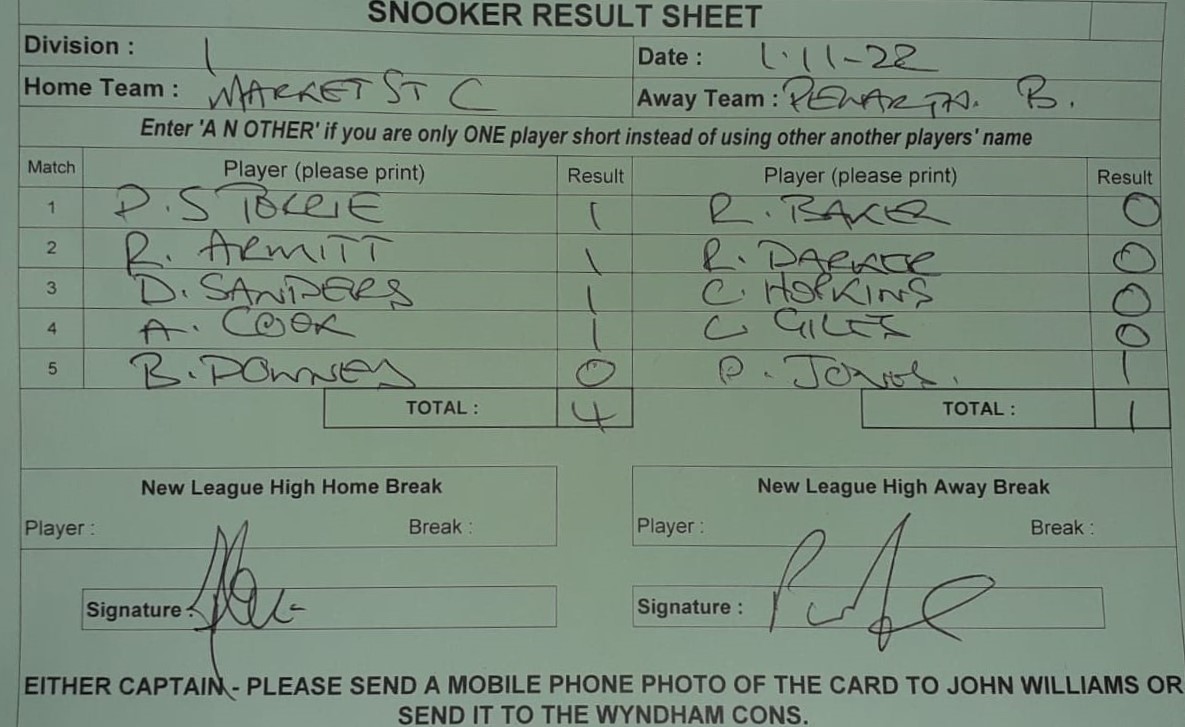 SNOOKER RESULT SHEET
Division : 1 Date : 1.11-22
Home Team : MARKET ST C Away Team : PENARTH. B.
Enter 'A N OTHER' if you are only ONE player short instead of using other another players' name
Match Player (please print) Result Player (please print) Result
1 P. STOKRIE 1 R. BAKER 0
2 R. ARMITT 1 R. DARKE 0
3 D. SANDERS 1 C. HOPKINS 0
4 A. COOK 1 C GILES 0
5 B. DOWNEY 0 P. JONES. 1
TOTAL : 4 TOTAL : 1
New League High Home Break New League High Away Break
Player : Break : Player : Break :
Signature : Signature :
EITHER CAPTAIN - PLEASE SEND A MOBILE PHONE PHOTO OF THE CARD TO JOHN WILLIAMS OR
SEND IT TO THE WYNDHAM CONS.